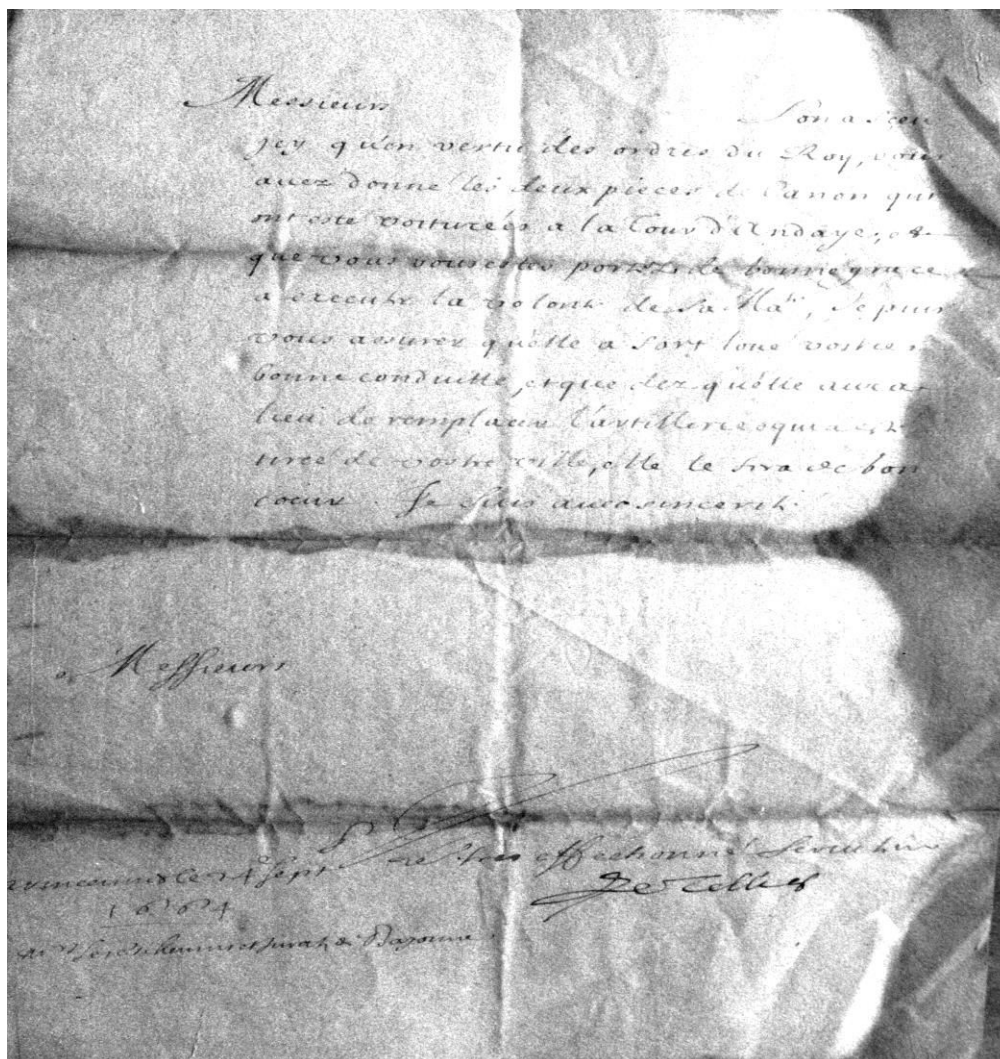 Messieurs
L'on a sceu
jcy qu'en vertu des ordres du Roy, vous
auez donné les deux pieces de Canon qui
ont esté voiturées à la Tour d'Andaye, et
que vous vous estes portés de bonne grace
a executer la volonté de sa Ma.té, Je puis
vous assurer qu'elle a fort loué vostre
bonne conduitte, et que dez qu'elle aura
lieu de remplacer l'artillerie qui a esté
tirée de vostre ville, elle le fera de bon
coeur. Je suis auec sincerité
Messieurs
Vostre tres affectionné seruiteur
LeTellier
a vincennes ce Sept
1664
Bayonne